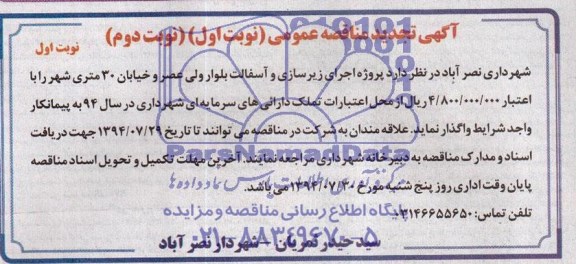 آگهی تجدید مناقصه عمومی (نوبت اول) (نوبت دوم)
نوبت اول
شهرداری نصر آباد در نظر دارد پروژه اجرای زیرسازی و آسفالت بلوار ولی عصر و خیابان ۳۰ متری شهر را با
اعتبار ۴/۸۰۰/۰۰۰/۰۰۰ ریال از محل اعتبارات تملک دارائی های سرمایه ای شهرداری در سال ۹۴ به پیمانکار
واجد شرایط واگذار نماید. علاقه مندان به شرکت در مناقصه می توانند تا تاریخ ۱۳۹۴/۰۷/۲۹ جهت دریافت
اسناد و مدارک مناقصه به دبیرخانه شهرداری مراجعه نمایند. آخرین مهلت تکمیل و تحویل اسناد مناقصه
پایان وقت اداری روز پنج شنبه مورخ ۱۳۹۴/۰۷/۳۰ می باشد.
تلفن تماس: ۰۳۱۴۶۶۵۵۶۵۰
سید حیدر کمریان - شهردار نصر آباد
ParsNamadData
پایگاه اطلاع رسانی مناقصه و مزایده
۰۲۱-۸۸۳۴۹۶۷۰-۵